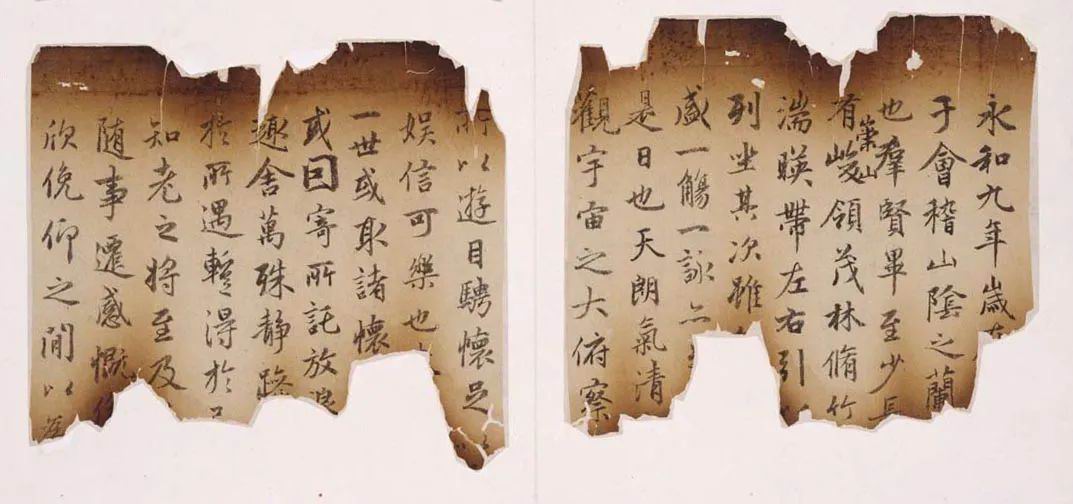 永和九年歲在
于會稽山陰之蘭
也羣賢畢至少長
有崇山峻領茂林脩竹
湍暎帶左右引以
列坐其次雖
盛一觴一詠亦
是日也天朗氣清
觀宇宙之大俯察
所以遊目騁懷足以
娱信可樂也
一世或取諸懷
或因寄所託放浪
趣舍萬殊静躁
於所遇暫得於己
知老之將至及
随事遷感慨係
欣俛仰之閒以爲